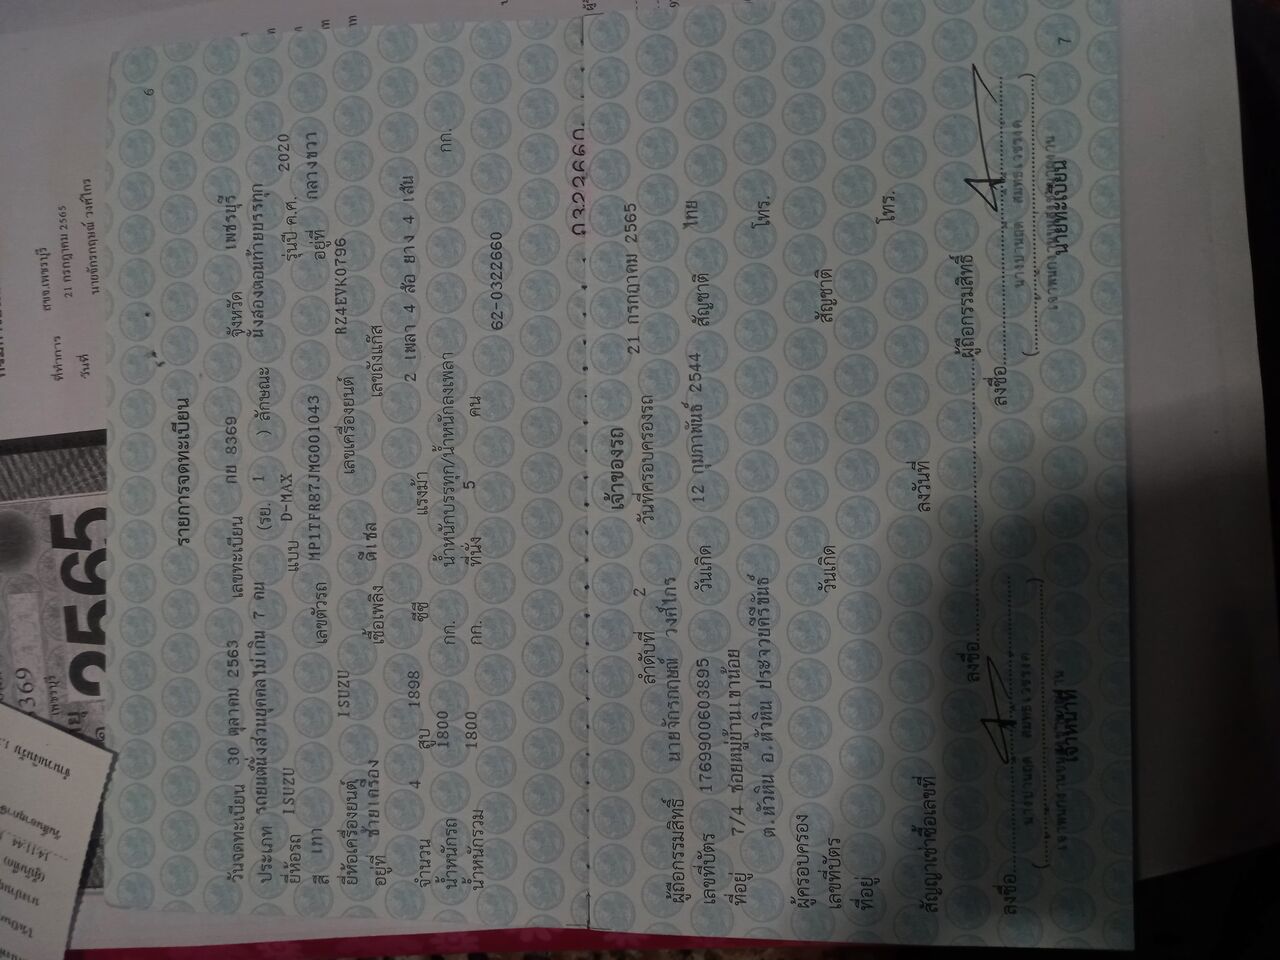 6
รายการจดทะเบียน
วันจดทะเบียน 30 ตุลาคม 2563 เลขทะเบียน กย 8369 จังหวัด เพชรบุรี
ประเภท รถยนต์นั่งส่วนบุคคลไม่เกิน 7 คน (รย. 1 ) ลักษณะ นั่งสองตอนท้ายบรรทุก
ยี่ห้อรถ ISUZU แบบ D-MAX รุ่นปี ค.ศ. 2020
สี เทา เลขตัวรถ MP1TFR87JMG001043 อยู่ที่ กลางขวา
ยี่ห้อเครื่องยนต์ ISUZU เลขเครื่องยนต์ RZ4EVK0796
อยู่ที่ ซ้ายเครื่อง เชื้อเพลิง ดีเซล เลขถังแก๊ส
จำนวน 4 สูบ 1898 ซีซี แรงม้า 2 เพลา 4 ล้อ ยาง 4 เส้น
น้ำหนักรถ 1800 กก. น้ำหนักบรรทุก/น้ำหนักลงเพลา กก.
น้ำหนักรวม 1800 กก. ที่นั่ง 5 คน
62-0322660
เจ้าของรถ
ลำดับที่ 2 วันที่ครอบครองรถ 21 กรกฎาคม 2565
ผู้ถือกรรมสิทธิ์ นายจักรกฤษณ์ วงศ์ไกร
เลขที่บัตร 1769900603895 วันเกิด 12 กุมภาพันธ์ 2544 สัญชาติ ไทย
ที่อยู่ 7/4 ซอยหมู่บ้านเขาน้อย
ต.หัวหิน อ.หัวหิน ประจวบคีรีขันธ์ โทร.
ผู้ครอบครอง
เลขที่บัตร วันเกิด สัญชาติ
ที่อยู่ โทร.
สัญญาเช่าซื้อเลขที่ ลงวันที่
ลงชื่อ ผู้ถือกรรมสิทธิ์
ลงชื่อ ลงชื่อ
เจ้าหน้าที่ นายทะเบียน
7
ที่ทำการ สขจ.เพชรบุรี
วันที่ 21 กรกฎาคม 2565
นายจักรกฤษณ์ วงศ์ไกร
2565